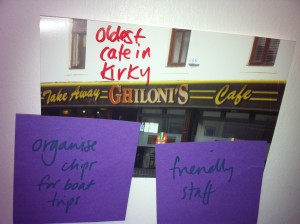 oldest
cafe in
Kirky
Take Away GHILONI'S Cafe
organise
chips
for boat
trips
friendly
staff